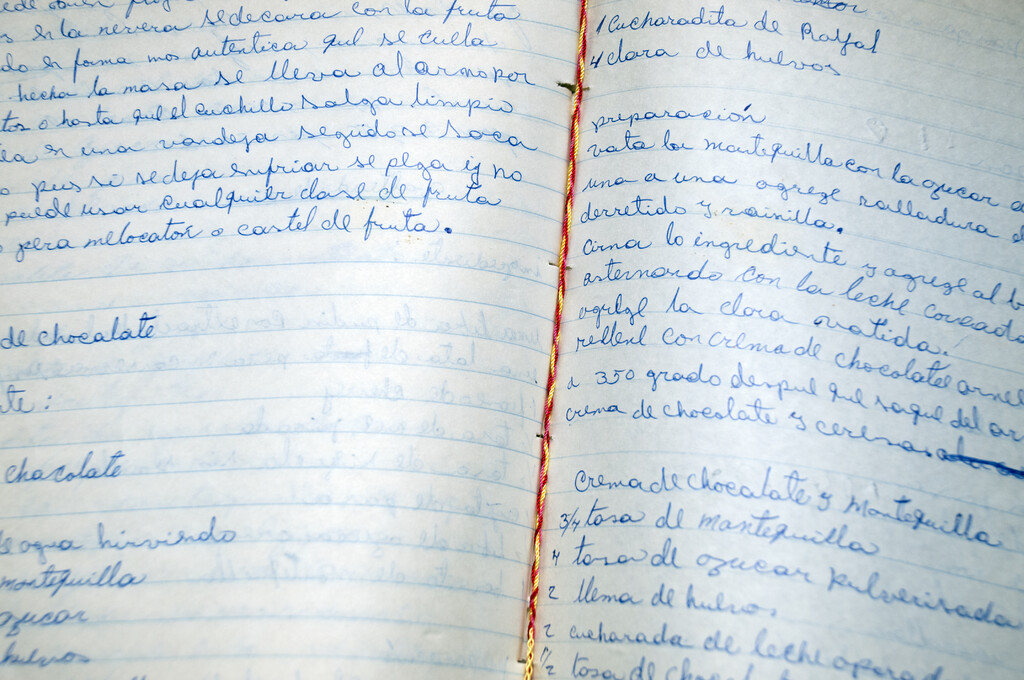 en la nevera se decora con la fruta
en forma mas autentica que se cuela
hecha la masa se lleva al arno por
o hasta que el cuchillo salga limpio
en una vandeja seguido se saca
pues si se deja enfriar se pega y no
puede usar cualquier clase de fruta
pera melocaton o coctel de fruta.
de chocalate
chacolate
agua hirviendo
mantequilla
azucar
huevos
1 Cucharadita de Rayal
4 clara de huevos
preparación
vata la mantequilla con la azucar
una a una agrege ralladura
derretido y vainilla.
cirna lo ingrediente y agrege al
asternando con la leche
agrege la clara vatida.
rellene con crema de chocolate
a 350 grado despue que saque del
crema de chocolate y ceresa.
Crema de chocalate y mantequilla
3/4 tasa de mantequilla
4 tasa de azucar pulverisada
2 llema de huevos
2 cucharada de leche
1/2 tasa de